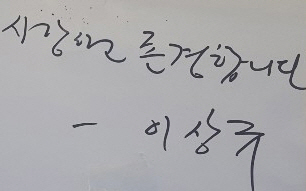 사랑하고 존경합니다
- 이상국